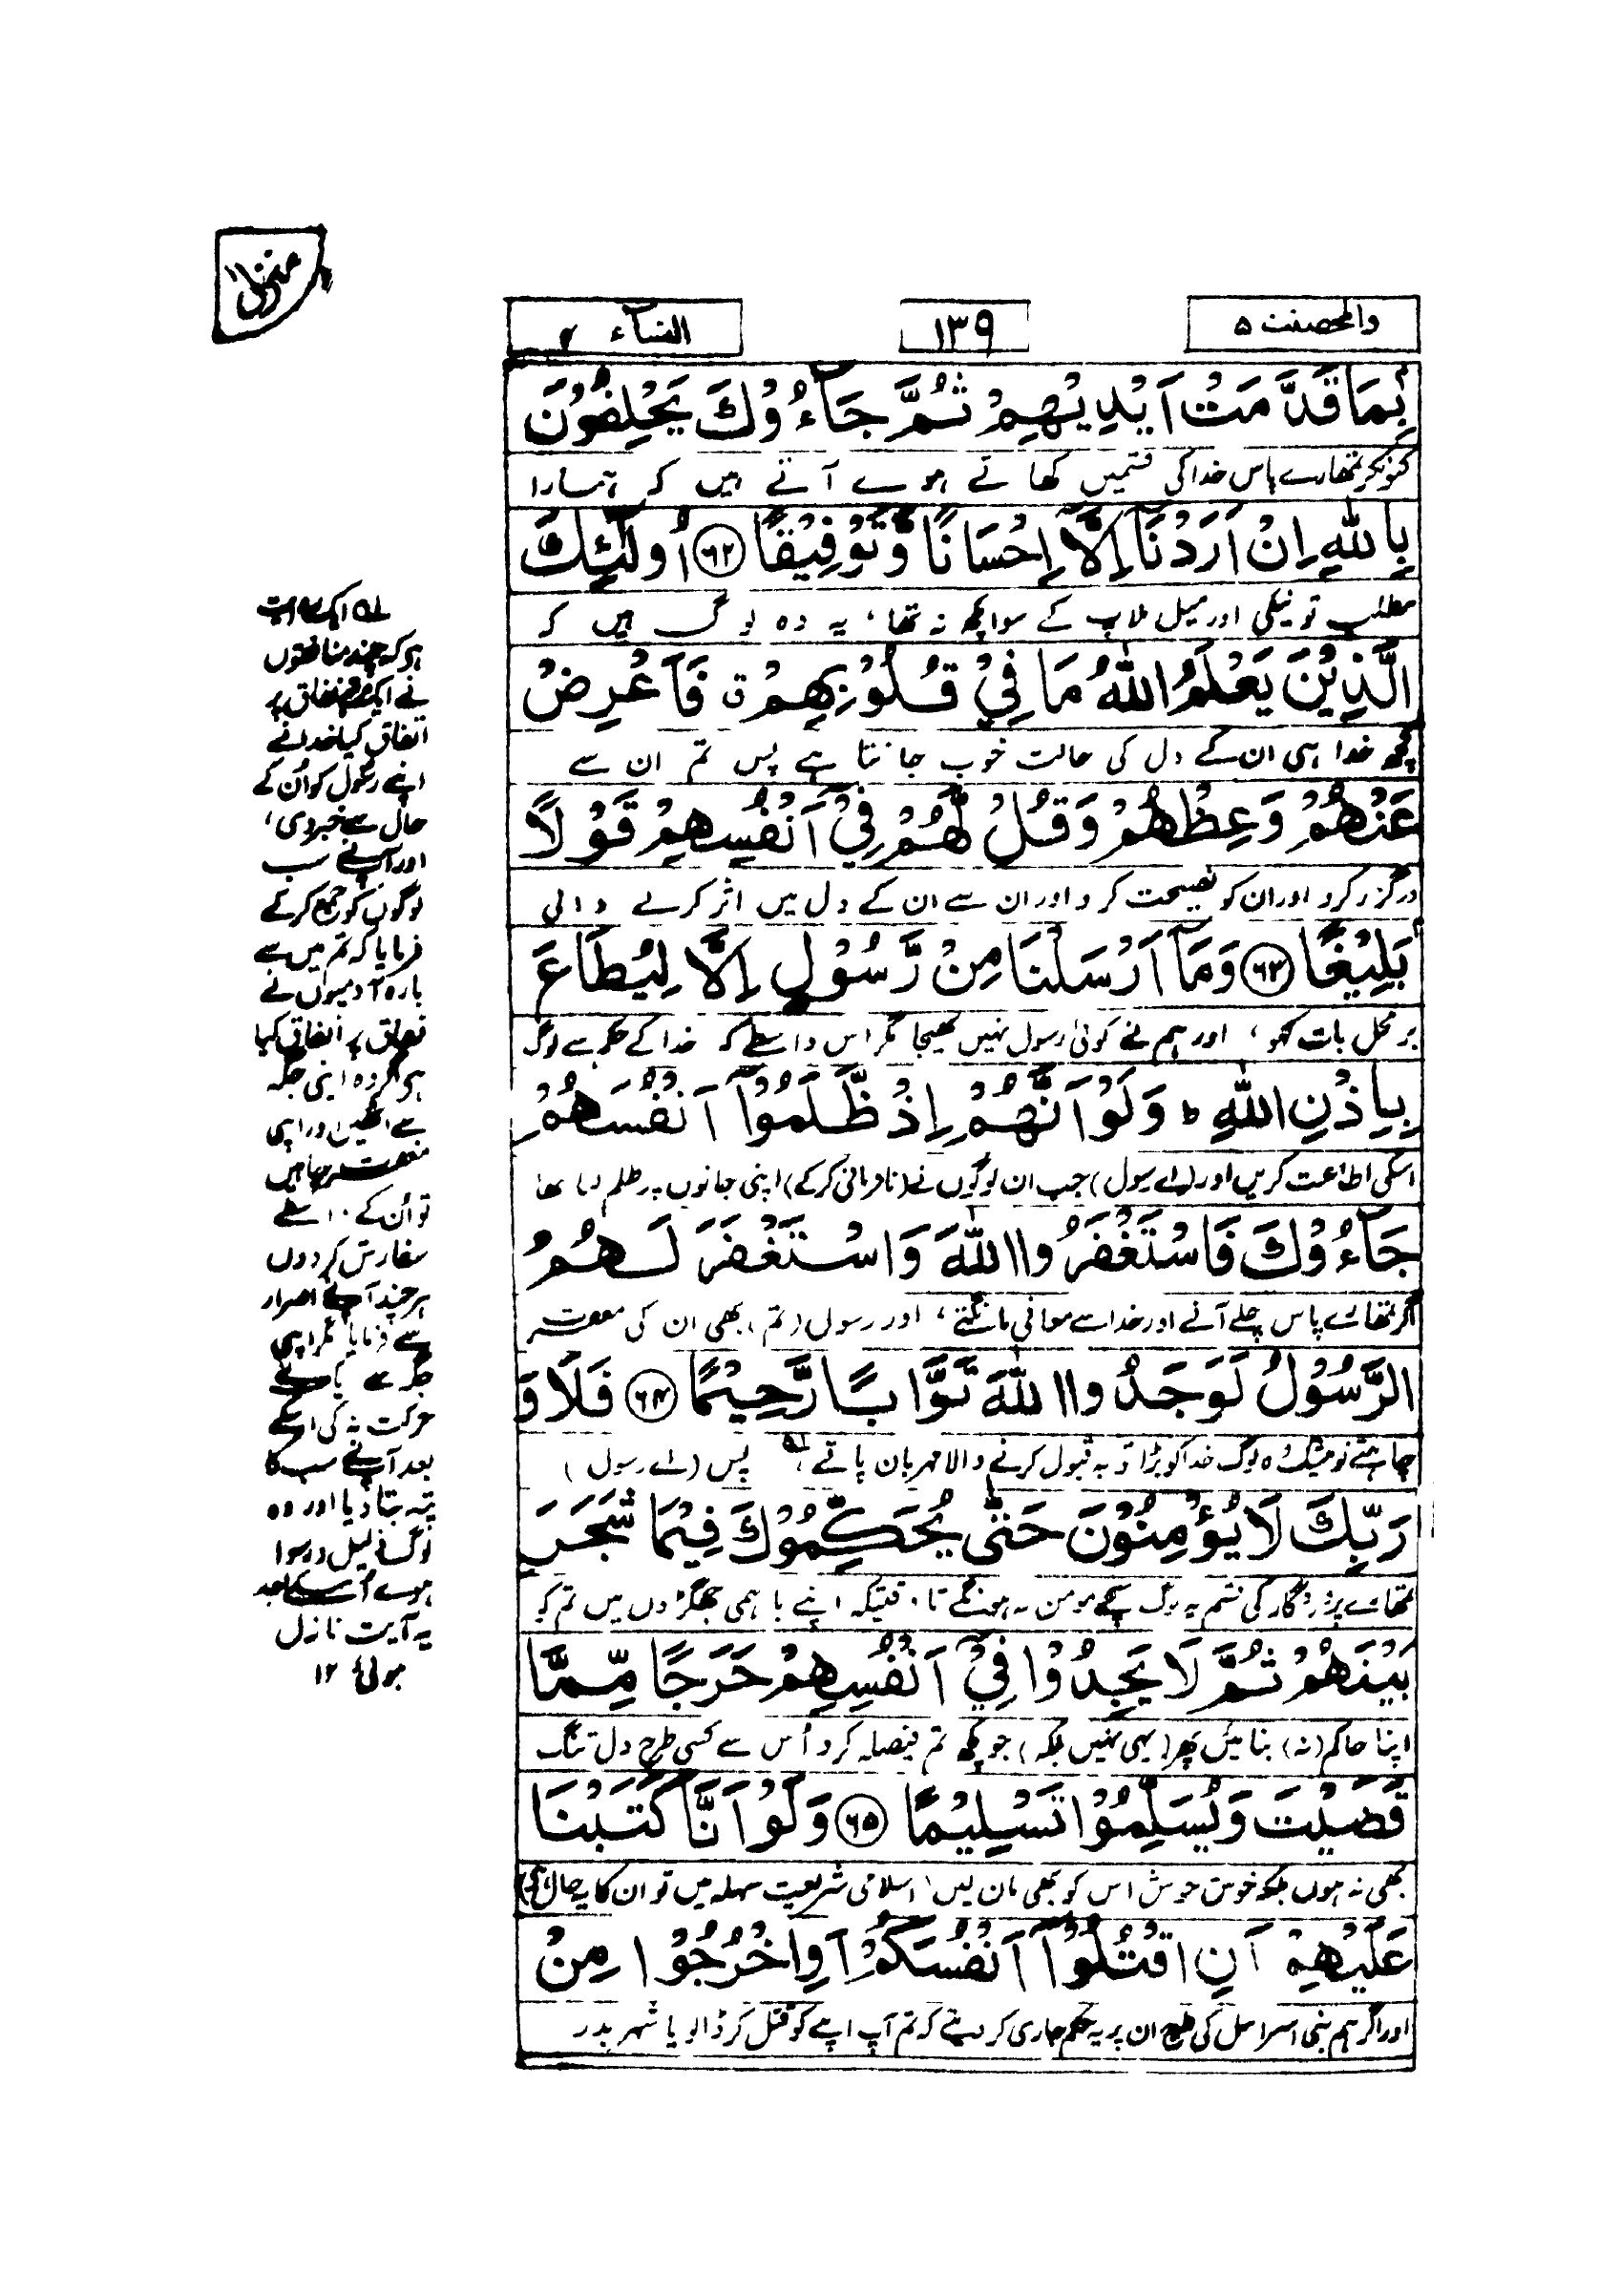 والمحصنت ۵
۱۳۹
النساء ۴
بِمَا قَدَّمَتْ اَیْدِیْهِمْ ثُمَّ جَآءُوْكَ یَحْلِفُوْنَ
کیونکر تمھارے پاس خدا کی قسمیں کھاتے ہوے آتے ہیں کہ ہمارا
بِاللّٰهِ اِنْ اَرَدْنَاۤ اِلَّاۤ اِحْسَانًا وَّ تَوْفِیْقًا ﴿۶۲﴾ اُولٰٓئِكَ
مطلب تو نیکی اور میل ملاپ کے سوا کچھ نہ تھا، یہ وہ لوگ ہیں کہ
الَّذِیْنَ یَعْلَمُ اللّٰهُ مَا فِیْ قُلُوْبِهِمْ ق فَاَعْرِضْ
کچھ خدا ہی ان کے دل کی حالت خوب جانتا ہے پس تم ان سے
عَنْهُمْ وَعِظْهُمْ وَقُلْ لَّهُمْ فِیْۤ اَنْفُسِهِمْ قَوْلًا
درگزر کرو اور ان کو نصیحت کرو اور ان سے ان کے دل میں اثر کرنے والی
بَلِیْغًا ﴿۶۳﴾ وَمَاۤ اَرْسَلْنَا مِنْ رَّسُوْلٍ اِلَّا لِیُطَاعَ
بر محل بات کہو، اور ہم نے کوئی رسول نہیں بھیجا مگر اس واسطے کہ خدا کے حکم سے لوگ
بِاِذْنِ اللّٰهِ ط وَلَوْ اَنَّهُمْ اِذْ ظَّلَمُوْۤا اَنْفُسَهُمْ
اسکی اطاعت کریں اور (اے رسول) جب ان لوگوں نے (نافرمانی کرکے) اپنی جانوں پر ظلم کیا تھا
جَآءُوْكَ فَاسْتَغْفَرُوا اللّٰهَ وَاسْتَغْفَرَ لَهُمُ
اگر تمھارے پاس چلے آتے اور خدا سے معافی مانگتے، اور رسول (تم) بھی ان کی مغفرت
الرَّسُوْلُ لَوَجَدُوا اللّٰهَ تَوَّابًا رَّحِیْمًا ﴿۶۴﴾ فَلَا وَ
چاہتے تو بیشک وہ لوگ خدا کو بڑا توبہ قبول کرنے والا مہربان پاتے، پس (اے رسول)
رَبِّكَ لَا یُؤْمِنُوْنَ حَتّٰی یُحَكِّمُوْكَ فِیْمَا شَجَرَ
تمھارے پروردگار کی قسم یہ لوگ سچے مومن نہ ہونگے تاوقتیکہ اپنے باہمی جھگڑوں میں تم کو
بَیْنَهُمْ ثُمَّ لَا یَجِدُوْا فِیْۤ اَنْفُسِهِمْ حَرَجًا مِّمَّا
اپنا حاکم (نہ) بنائیں پھر (یہی نہیں بلکہ) جو کچھ تم فیصلہ کرو اُس سے کسی طرح دل تنگ
قَضَیْتَ وَیُسَلِّمُوْا تَسْلِیْمًا ﴿۶۵﴾ وَلَوْ اَنَّا كَتَبْنَا
بھی نہ ہوں بلکہ خوش خوش اس کو بھی مان لیں اسلامی شریعت سہلہ میں تو ان کا یہ حال ہے
عَلَیْهِمْ اَنِ اقْتُلُوْۤا اَنْفُسَكُمْ اَوِ اخْرُجُوْا مِنْ
اور اگر ہم بنی اسرائیل کی طرح ان پر یہ حکم جاری کر دیتے کہ تم آپ اپنے کو قتل کر ڈالو یا شہر بدر
منزل
ہو کہ چند منافقوں
نے ایک نفاق پر
اتفاق کیا خدا نے
اپنے رسول کو اُن کے
حال سے خبر دی،
اور آپنے سب
لوگوں کو جمع کر کے
فرمایا کہ تم میں سے
بارہ آدمیوں نے
نفاق پر اتفاق کیا
ہے اگر وہ اپنی جگہ
سے اٹھیں اور اپنی
مغفرت چاہیں
تو اُن کے واسطے
سفارش کر دوں
ہر چند آپنے اصرار
سے فرمایا مگر اپنی
جگہ سے
حرکت نہ کی اسکے
بعد آپنے سب کا
پتہ بتا دیا اور وہ
لوگ ذلیل و رسوا
ہوے اُسکے بعد
یہ آیت نازل
ہوئی ۱۲